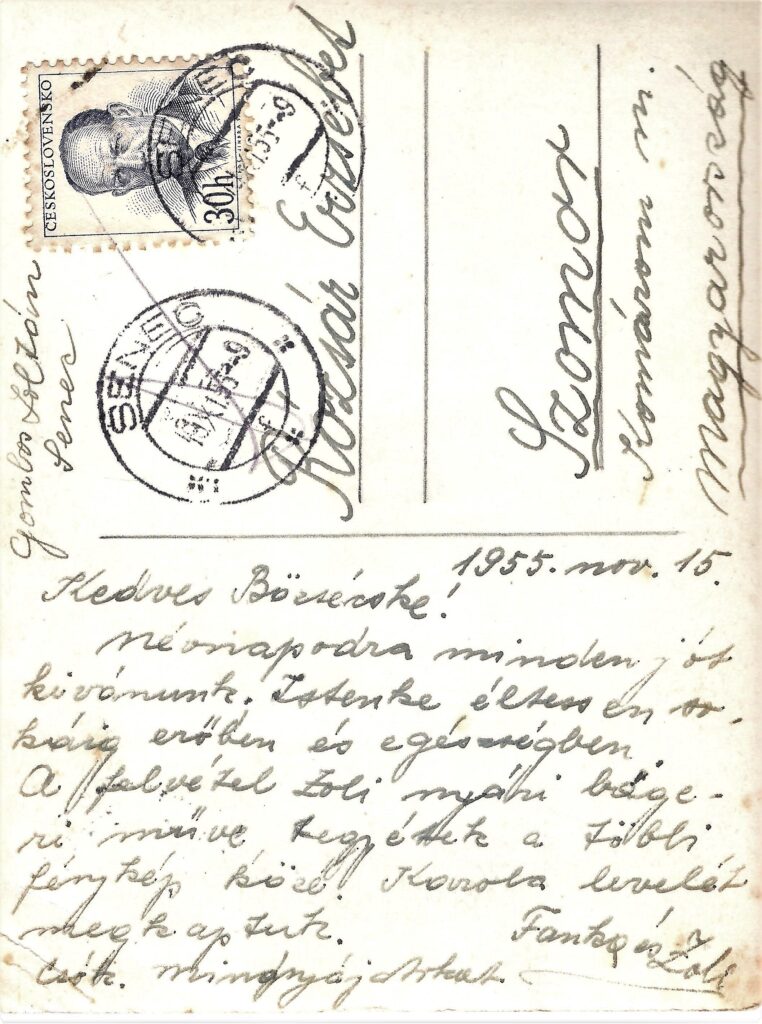 ČESKOSLOVENSKO
30h
SENEC
55-9
SENEC
XI.55-9
Gombos Zoltán
Senec
Rózsár Erzsébet
Szomor
Komárom m.
Magyarország
1955. nov. 15.
Kedves Bözsécske!
Névnapodra minden jót
kivánunk. Istenke éltessen so-
káig erőben és egészségben.
A felvétel Zoli nyári
ri műve tegyétek a többi
fénykép közé. Karola levelét
megkaptuk.
és Zoli
Csók. mindnyájatokat